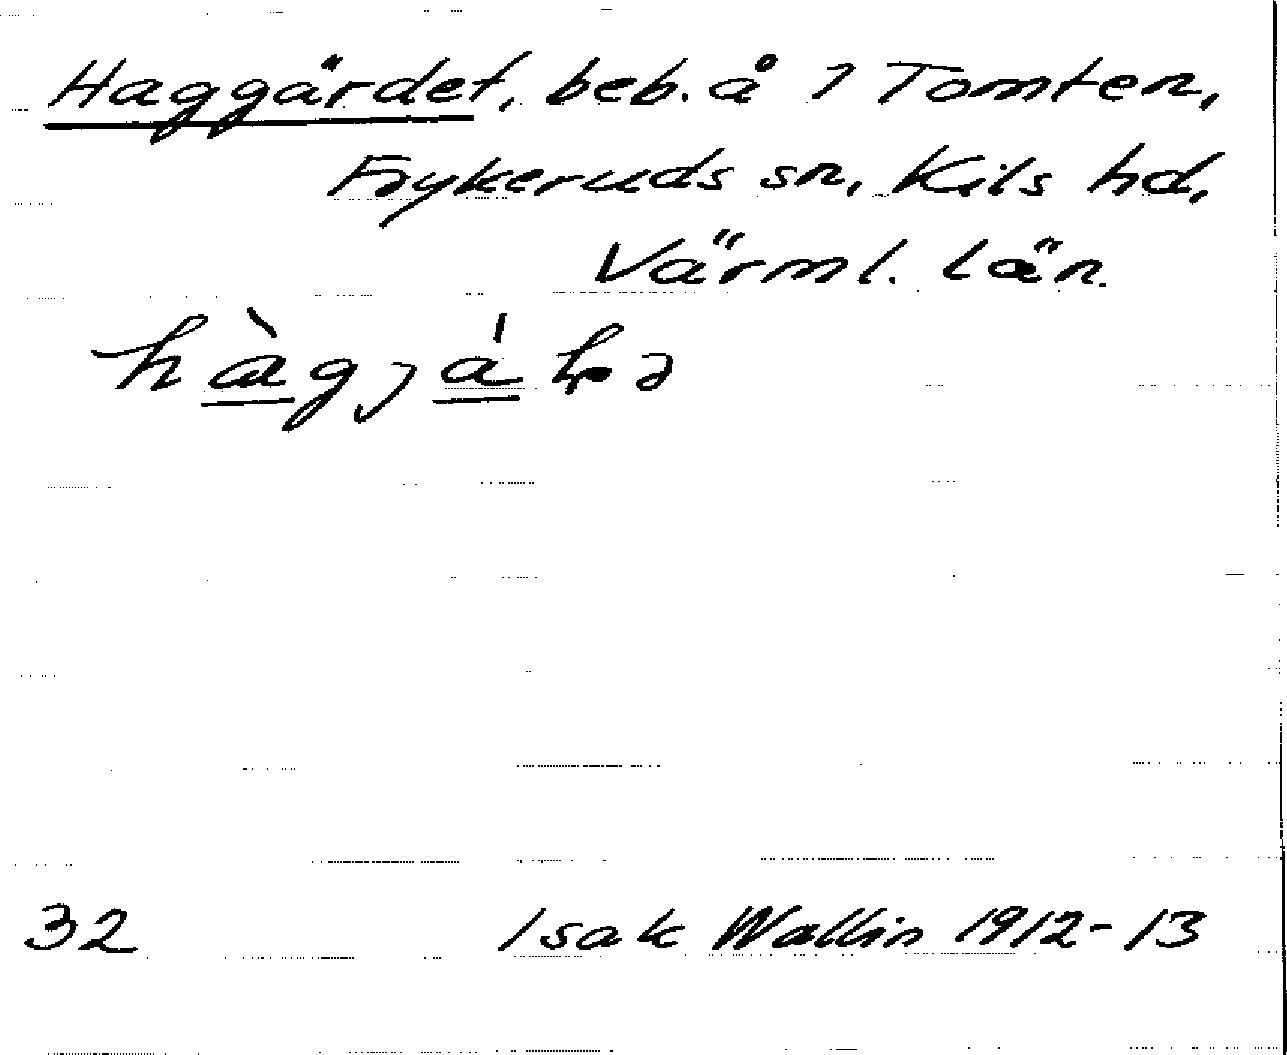 Haggärdet, beb. å 1 Tomten,
Frykeruds sn, Kils hd,
Värml. län.
32 Isak Wallin 1912-13